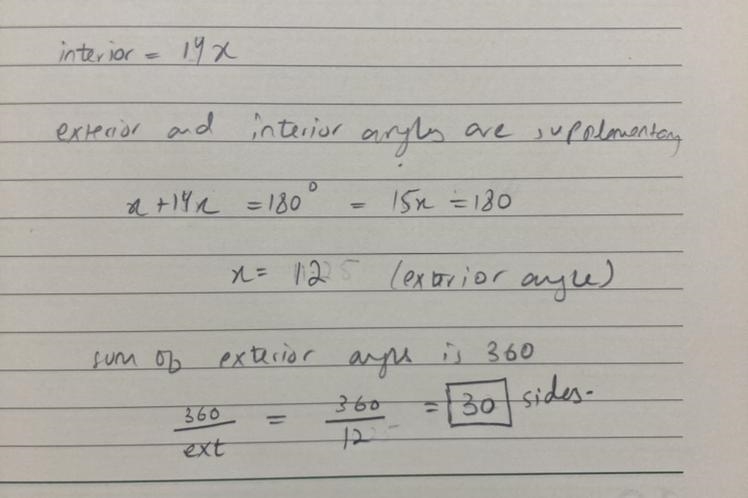 interior = 14x
exterior and interior angles are supplementary
x + 14x = 180° = 15x = 180
x = 12 (exterior angle)
sum of exterior angle is 360
360/ext = 360/12 = 30 sides.